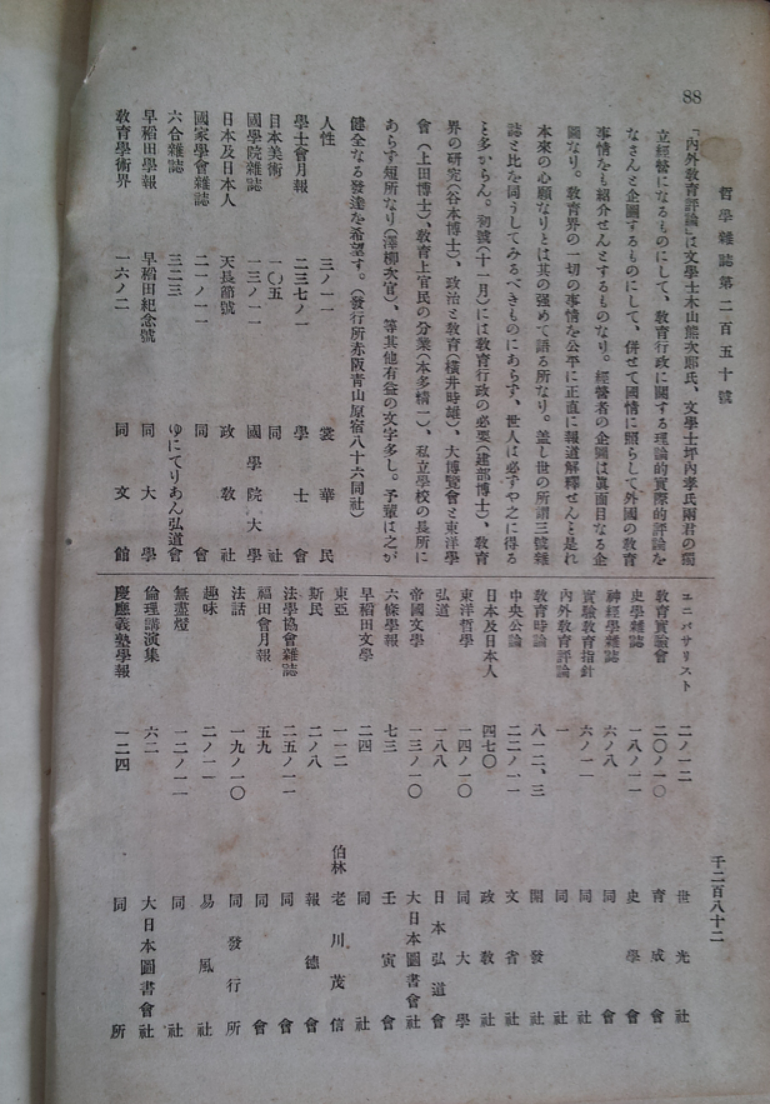 88
哲學雜誌第二百五十號
千二百八十二
「內外敎育評論」は文學士木山熊次郞氏、文學士坪內孝氏兩君の獨
立經營になるものにして、敎育行政に關する理論的實際的評論を
なさんと企圖するものにして、併せて國情に照らして外國の敎育
事情をも紹介せんとするものなり。經營者の企圖は眞面目なる企
圖なり。敎育界の一切の事情を公平に正直に報道解釋せんと是れ
本來の心願なりとは其の强めて語る所なり。盖し世の所謂三號雜
誌と比を同うしてみるべきものにあらず、世人は必ずや之に得る
と多からん。初號(十一月)には敎育行政の必要(建部博士)、敎育
界の硏究(谷本博士)、政治と敎育(橫井時雄)、大博覽會と東洋學
會(上田博士)、敎育上官民の分業(本多精一)、私立學校の長所に
あらず短所なり(澤柳次官)、等其他有益の文字多し。予輩は之が
健全なる發達を希望す。(發行所赤阪靑山原宿八十六同社)
人性 三ノ一一 裳華民
學士會月報 二三七ノ一 學士會
日本美術 一〇五 同社
國學院雜誌 一三ノ一一 國學院大學
日本及日本人 天長節號 政敎社
國家學會雜誌 二一ノ一一 同會
六合雜誌 三二三 ゆにてりあん弘道會
早稻田學報 早稻田紀念號 同大學
敎育學術界 一六ノ二 同文館
ユニバサリスト 二ノ一二 世光社
敎育實驗會 二〇ノ一〇 育成會
史學雜誌 一八ノ一一 史學會
神經學雜誌 六ノ八 同會
實驗敎育指針 六ノ一一 同社
內外敎育評論 一 同社
敎育時論 八一二、三 開發社
中央公論 二二ノ一一 文省社
日本及日本人 四七〇 政敎社
東洋哲學 一四ノ一〇 同大學
弘道 一八八 日本弘道會
帝國文學 一三ノ一〇 大日本圖書會社
六條學報 七三 壬寅會
早稻田文學 二四 同社
東亞 一一二 伯林 老川茂信
斯民 二ノ八 報德會
法學協會雜誌 二五ノ一一 同會
福田會月報 五九 同會
法話 一九ノ一〇 同發行所
趣味 二ノ一一 易風社
無盡燈 一二ノ一一 同社
倫理講演集 六二 大日本圖書會社
慶應義塾學報 一二四 同所